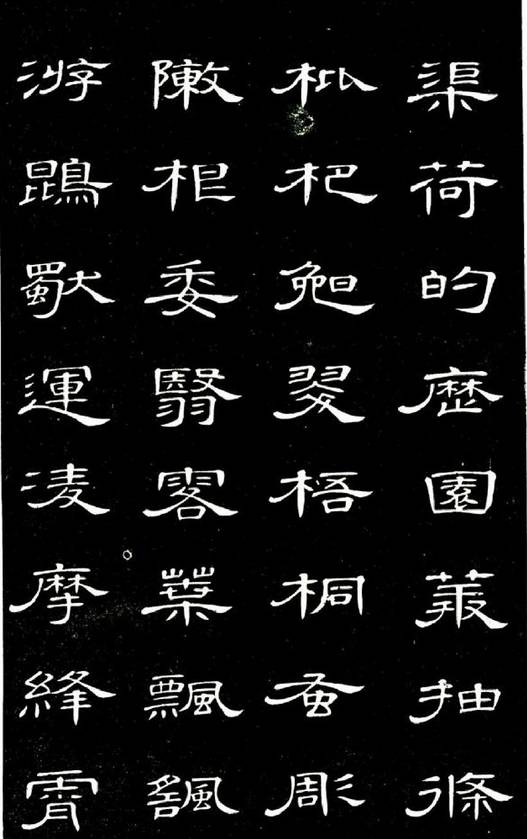 渠荷的歷園莽抽條
枇杷晚翠梧桐蚤彫
陳根委翳落葉飄颻
游鵾獨運凌摩絳霄